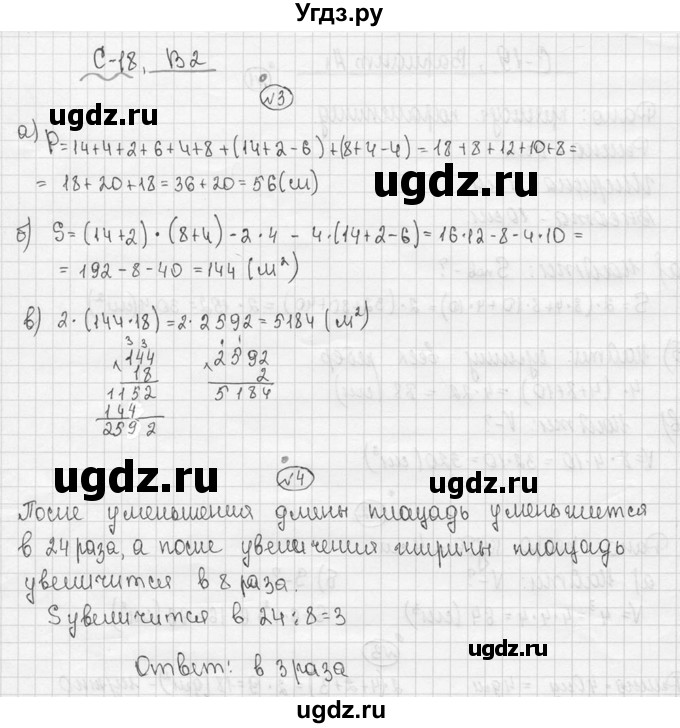 Угдз.ру
С-18, В2
№3
а) P=14+4+2+6+4+8+(14+2-6)+(8+4-4)=18+8+12+10+8=
= 18+20+18=36+20=56(м)
ugdz.ru
ugdz.ru
б) S=(14+2)·(8+4)-2·4 - 4·(14+2-6)=16·12-8-4·10=
= 192-8-40=144 (м²)
в) 2·(144·18)=2·2592=5184 (м²)
3 3
× 144
18
1152
144
2592
1 1
× 2592
2
5184
ugdz.ru
№4
ugdz.ru
ugdz.ru
После уменьшения длины площадь уменьшится
в 24 раза, а после увеличения ширины площадь
увеличится в 8 раза.
S увеличится в 24:8=3
Ответ: в 3 раза
ugdz.ru
ugdz.ru